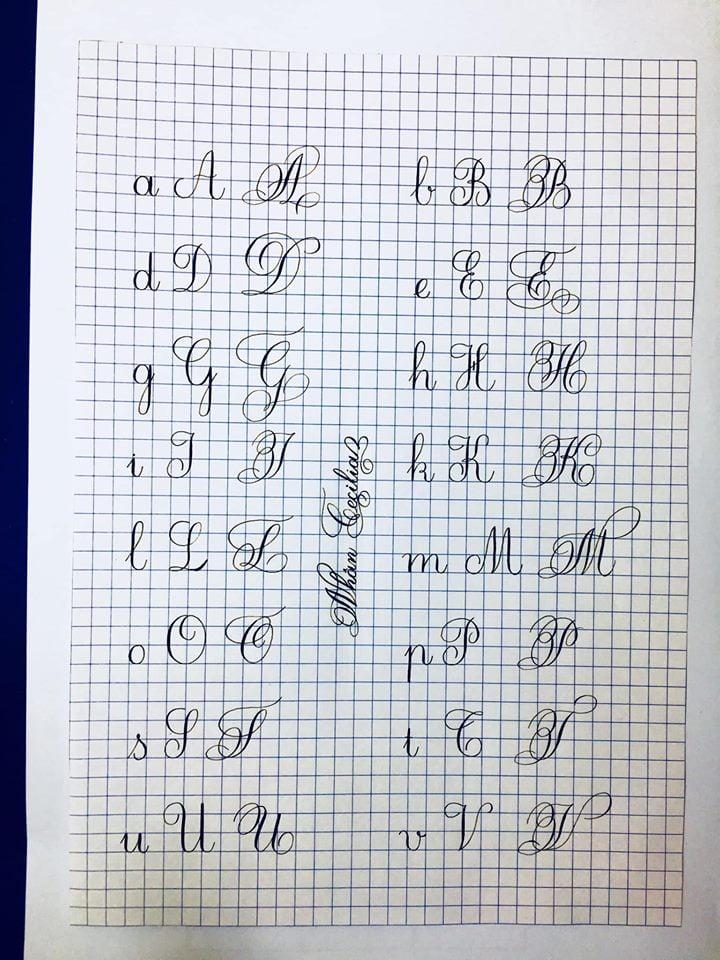 a A A b B B
d D D e E E
g G G h H H
i I I k K K
l L L m M M
o O O p P P
s S S t T T
u U U v V V
Nhàn Cecilia